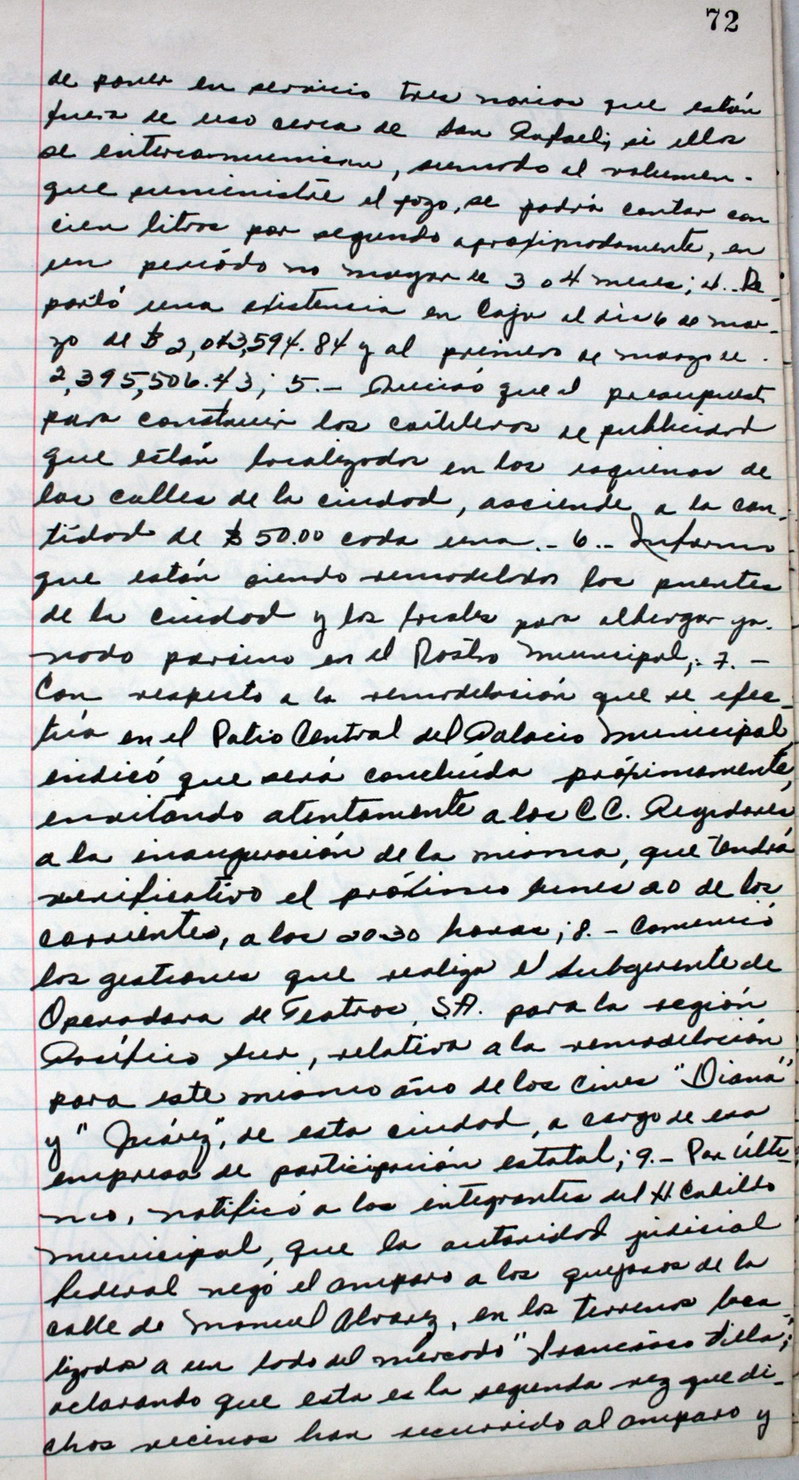 72
de poner en servicio tres norias que están
fuera de uso cerca de San Rafael; si ellos
se intercomunican, sumado al volumen
que suministre el pozo, se podrá contar con
cien litros por segundo aproximadamente, en
un período no mayor de 3 o 4 meses; 4.- Re-
portó una existencia en Caja al día 6 de mar-
zo de $ 2,043,594.84 y al primero de marzo de
2,395,506.43; 5.- Anunció que el presupuesto
para construir los cartileros de publicidad
que están localizados en las esquinas de
las calles de la ciudad, asciende a la can-
tidad de $50.00 cada una.- 6.- Informó
que están siendo remodelados los puentes
de la ciudad y los locales para albergar ga-
nado porcino en el Rastro Municipal; 7.-
Con respecto a la remodelación que se efec-
túa en el Patio Central del Palacio Municipal,
indicó que será concluída próximamente,
invitando atentamente a los C.C. Regidores
a la inauguración de la misma, que tendrá
verificativo el próximo lunes 20 de los
corrientes, a las 20:30 horas; 8.- Comunicó
las gestiones que realiza el Subgerente de
Operadora de Teatros, S.A. para la región
Pacífico Sur, relativa a la remodelación
para este mismo año de los cines "Diana"
y "Juárez", de esta ciudad, a cargo de esa
empresa de participación estatal; 9.- Por últi-
mo, notificó a los integrantes del H. Cabildo
Municipal, que la autoridad judicial
federal negó el amparo a los quejosos de la
calle de Manuel Alvarez, en los terrenos loca-
lizados a un lado del mercado "Francisco Villa";
aclarando que esta es la segunda vez que di-
chos vecinos han recurrido al amparo y